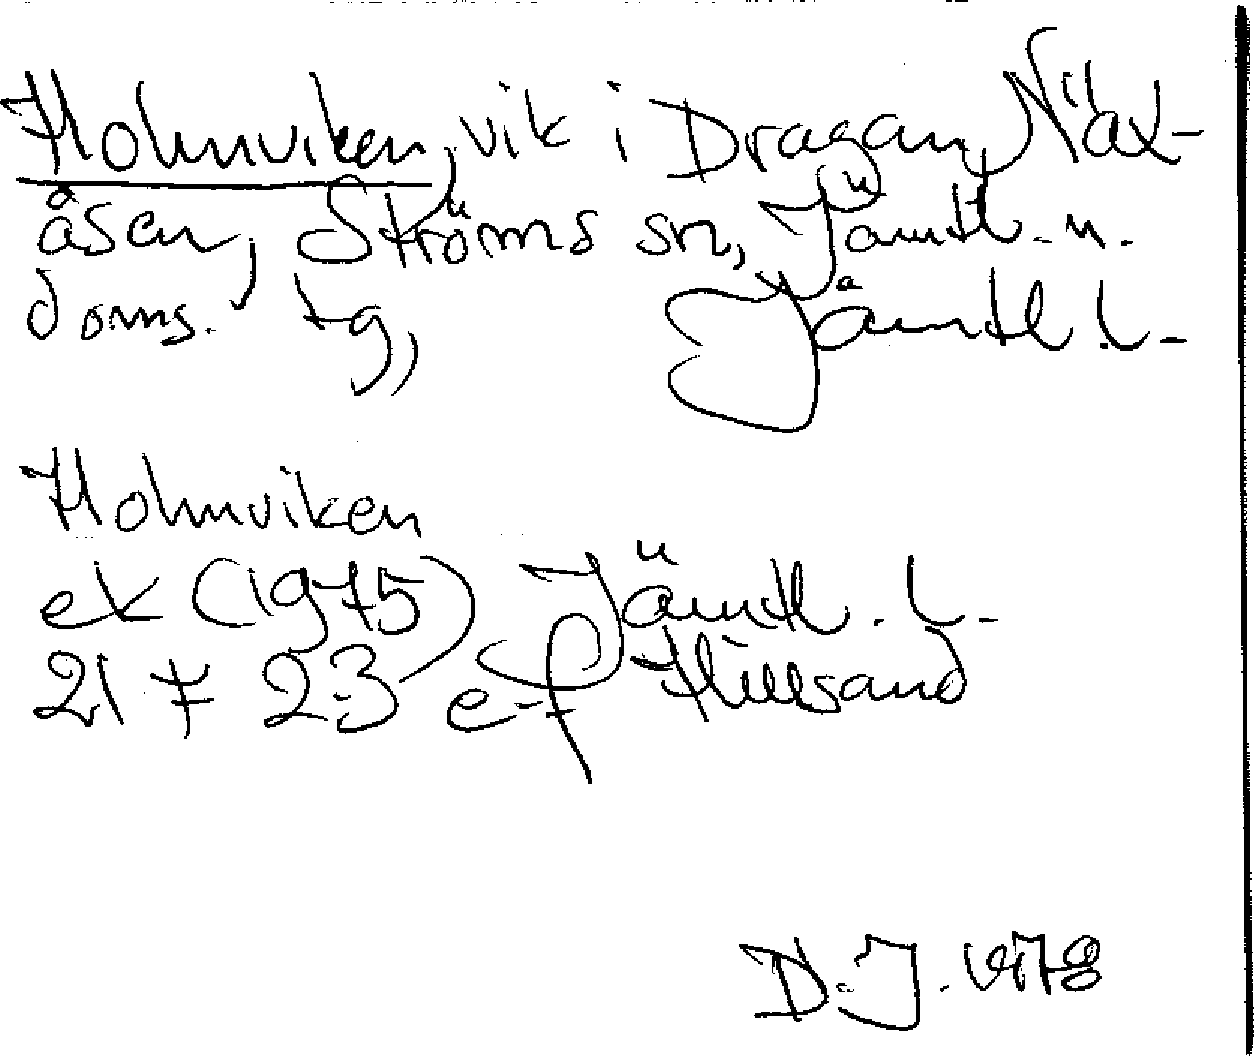 Holmviken, vik i Dragan, Näx-
åsen, Ströms sn, Jämtl. n.
doms. tg, Jämtl l.
Holmviken
ek (1975) Jämtl. l.
21 F 2-3 e-f Hillsand
D. J. vt78